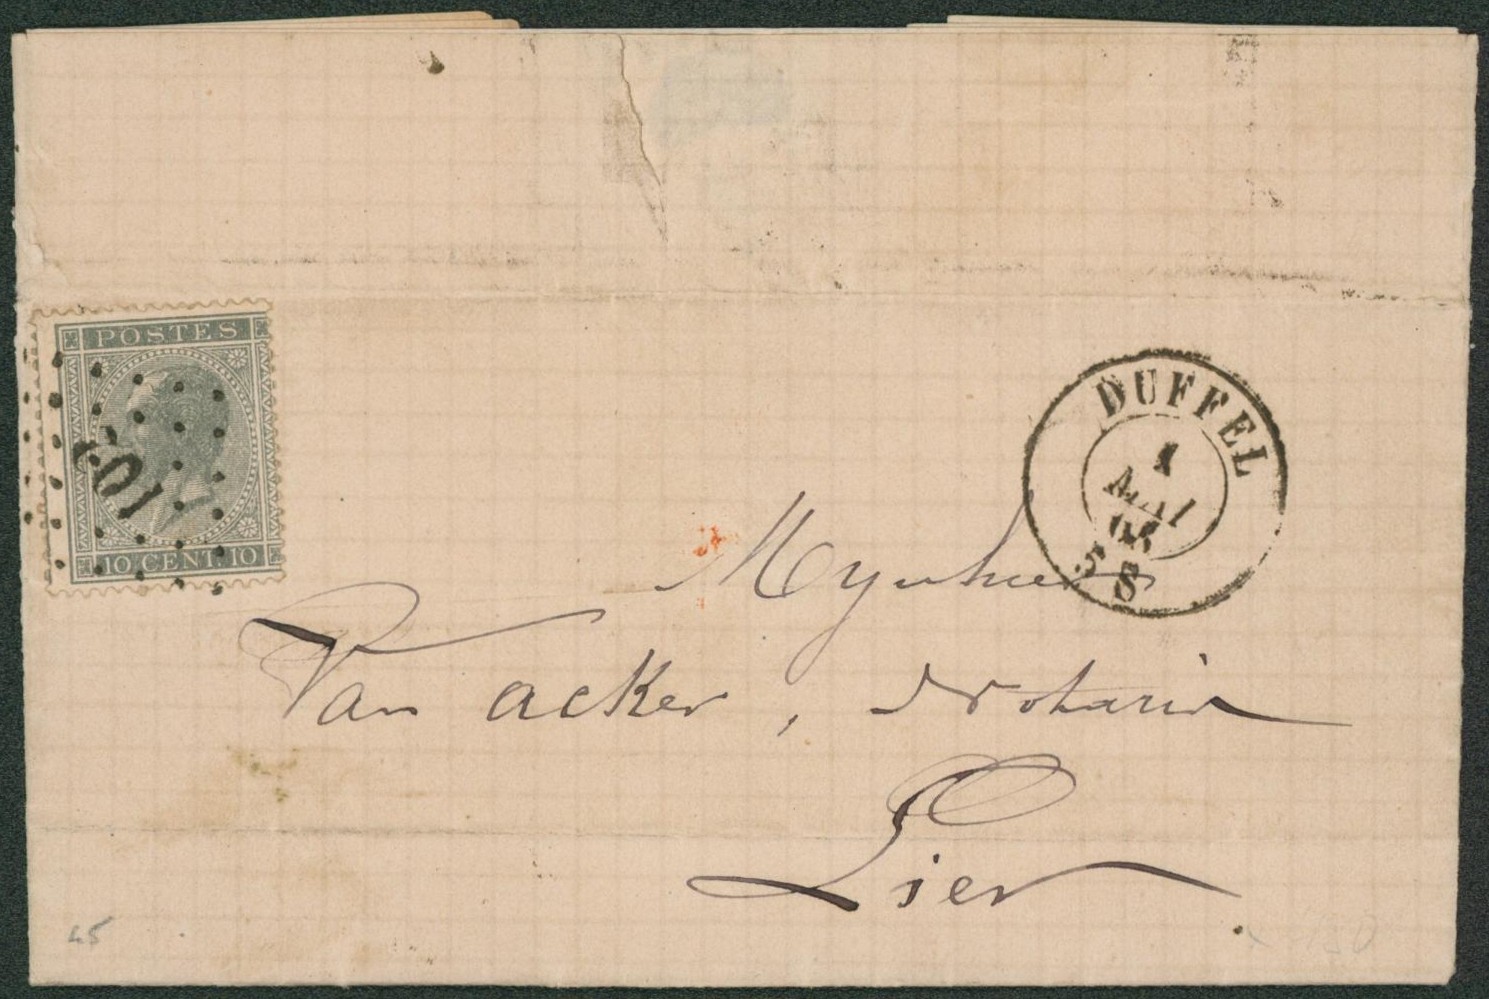 POSTES
10 CENT. 10
DUFFEL
1
MAI
5 S
Mynheer
Van acker, Notaris
Lier
45